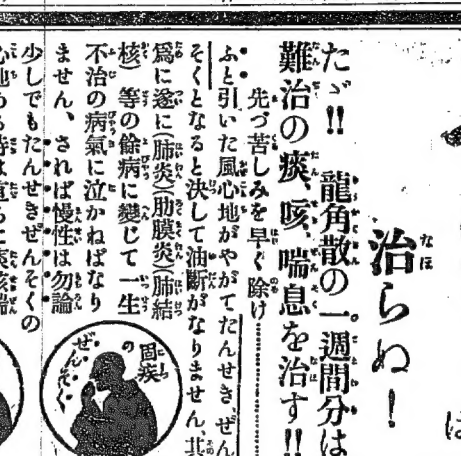 治らぬ！
たゞ!! 龍角散の一週間分は
難治の痰、咳、喘息を治す!!
先づ苦しみを早く除け
ふと引いた風心地がやがてたんせき、ぜん
そくとなると決して油斷がなりません、其
爲に遂に(肺炎)(肋膜炎)(肺結
核)等の餘病に變じて一生
不治の病氣に泣かねばなり
ません、されば慢性は勿論
少しでもたんせきぜんそくの
固疾の
ぜんそく